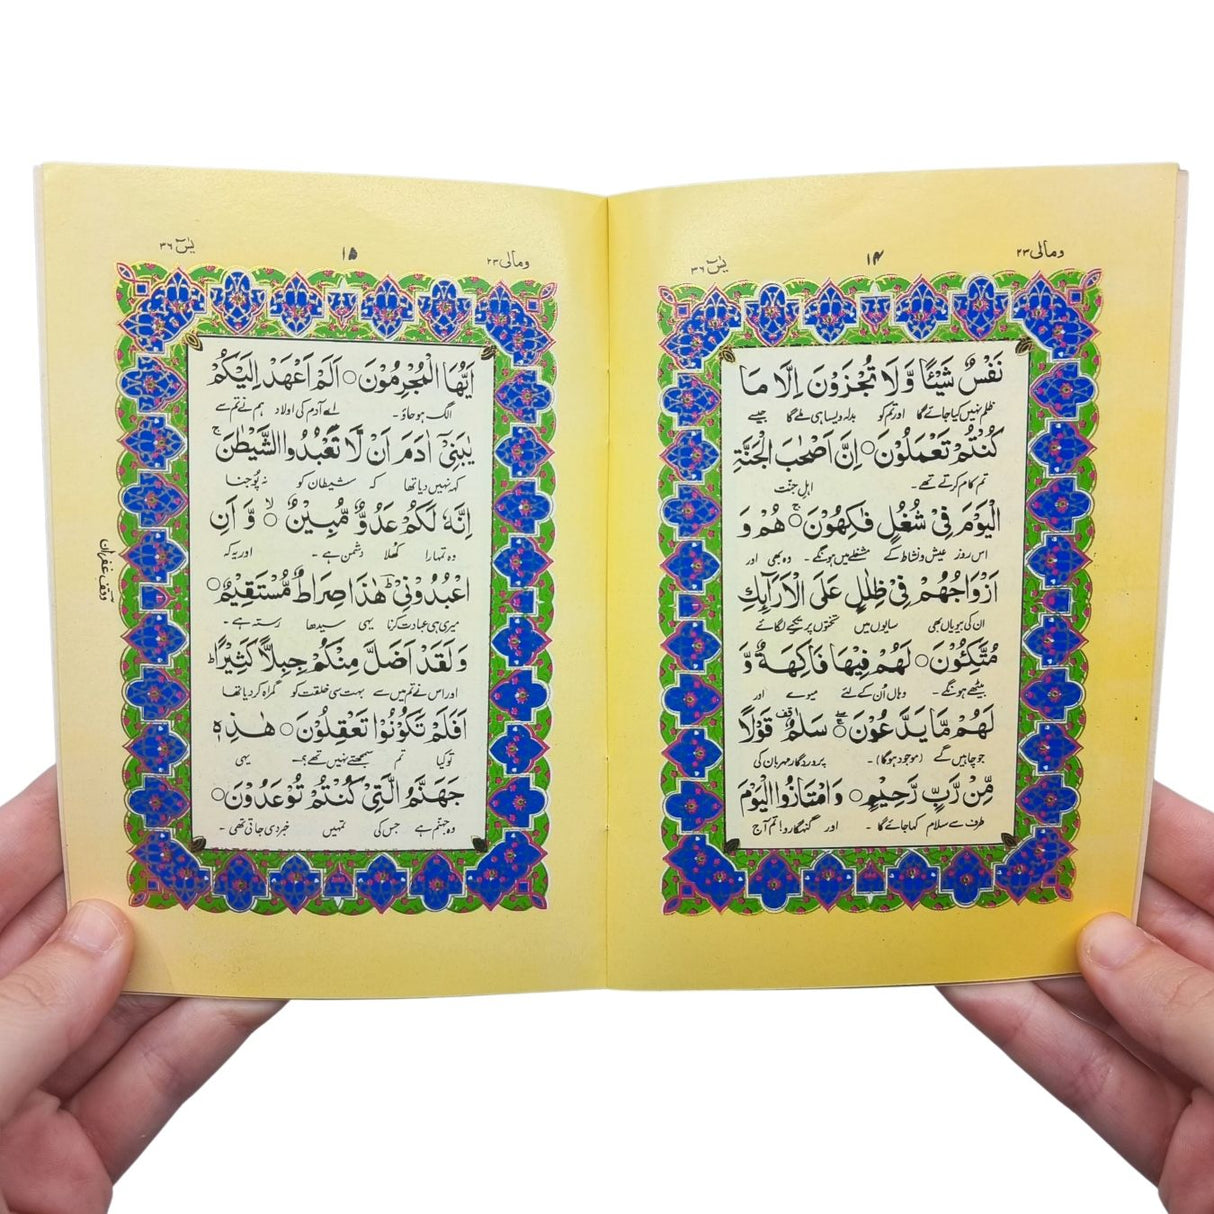 ومالی ۲۳
۱۴
یٰسٓ ۳۶
نَفْسٌ شَيْـًٔا وَّلَا تُجْزَوْنَ اِلَّا مَا
ظلم نہیں کیا جائے گا اور تم کو بدلہ ویسا ہی ملے گا جیسے
كُنْتُمْ تَعْمَلُوْنَ○ اِنَّ اَصْحٰبَ الْجَنَّةِ
تم کام کرتے تھے۔ اہل جنت
الْيَوْمَ فِيْ شُغُلٍ فٰكِهُوْنَ○ۚ هُمْ وَ
اس روز عیش و نشاط کے مشغلے میں ہونگے۔ وہ بھی اور
اَزْوَاجُهُمْ فِيْ ظِلٰلٍ عَلَى الْاَرَآىِٕكِ
ان کی بیویاں بھی سایوں میں تختوں پر تکیے لگائے
مُتَّكِـُٔوْنَ○ لَهُمْ فِيْهَا فَاكِهَةٌ وَّ
بیٹھے ہونگے۔ وہاں اُن کے لئے میوے اور
لَهُمْ مَّا يَدَّعُوْنَ○ سَلٰمٌ قف قَوْلًا
جو چاہیں گے (موجود ہوگا)۔ پروردگار مہربان کی
مِّنْ رَّبٍّ رَّحِيْمٍ○ وَامْتَازُوا الْيَوْمَ
طرف سے سلام کہا جائے گا۔ اور گنہگارو! تم آج
ومالی ۲۳
۱۵
یٰسٓ ۳۶
اَيُّهَا الْمُجْرِمُوْنَ○ اَلَمْ اَعْهَدْ اِلَيْكُمْ
الگ ہو جاؤ۔ اے آدم کی اولاد ہم نے تم سے
يٰبَنِيْٓ اٰدَمَ اَنْ لَّا تَعْبُدُوا الشَّيْطٰنَ ۚ
کہہ نہیں دیا تھا کہ شیطان کو نہ پُوجنا
اِنَّهٗ لَكُمْ عَدُوٌّ مُّبِيْنٌ○ۙ وَّ اَنِ
وہ تمہارا کھلا دشمن ہے۔ اور یہ کہ
اعْبُدُوْنِيْ ؕ هٰذَا صِرَاطٌ مُّسْتَقِيْمٌ○
میری ہی عبادت کرنا یہی سیدھا رستہ ہے۔
وَلَقَدْ اَضَلَّ مِنْكُمْ جِبِلًّا كَثِيْرًا ؕ
اور اس نے تم میں سے بہت سی خلقت کو گمراہ کر دیا تھا
اَفَلَمْ تَكُوْنُوْا تَعْقِلُوْنَ○ هٰذِهٖ
تو کیا تم سمجھتے نہیں تھے؟۔ یہی
جَهَنَّمُ الَّتِيْ كُنْتُمْ تُوْعَدُوْنَ○
وہ جہنم ہے جس کی تمہیں خبر دی جاتی تھی۔
وقف غفران